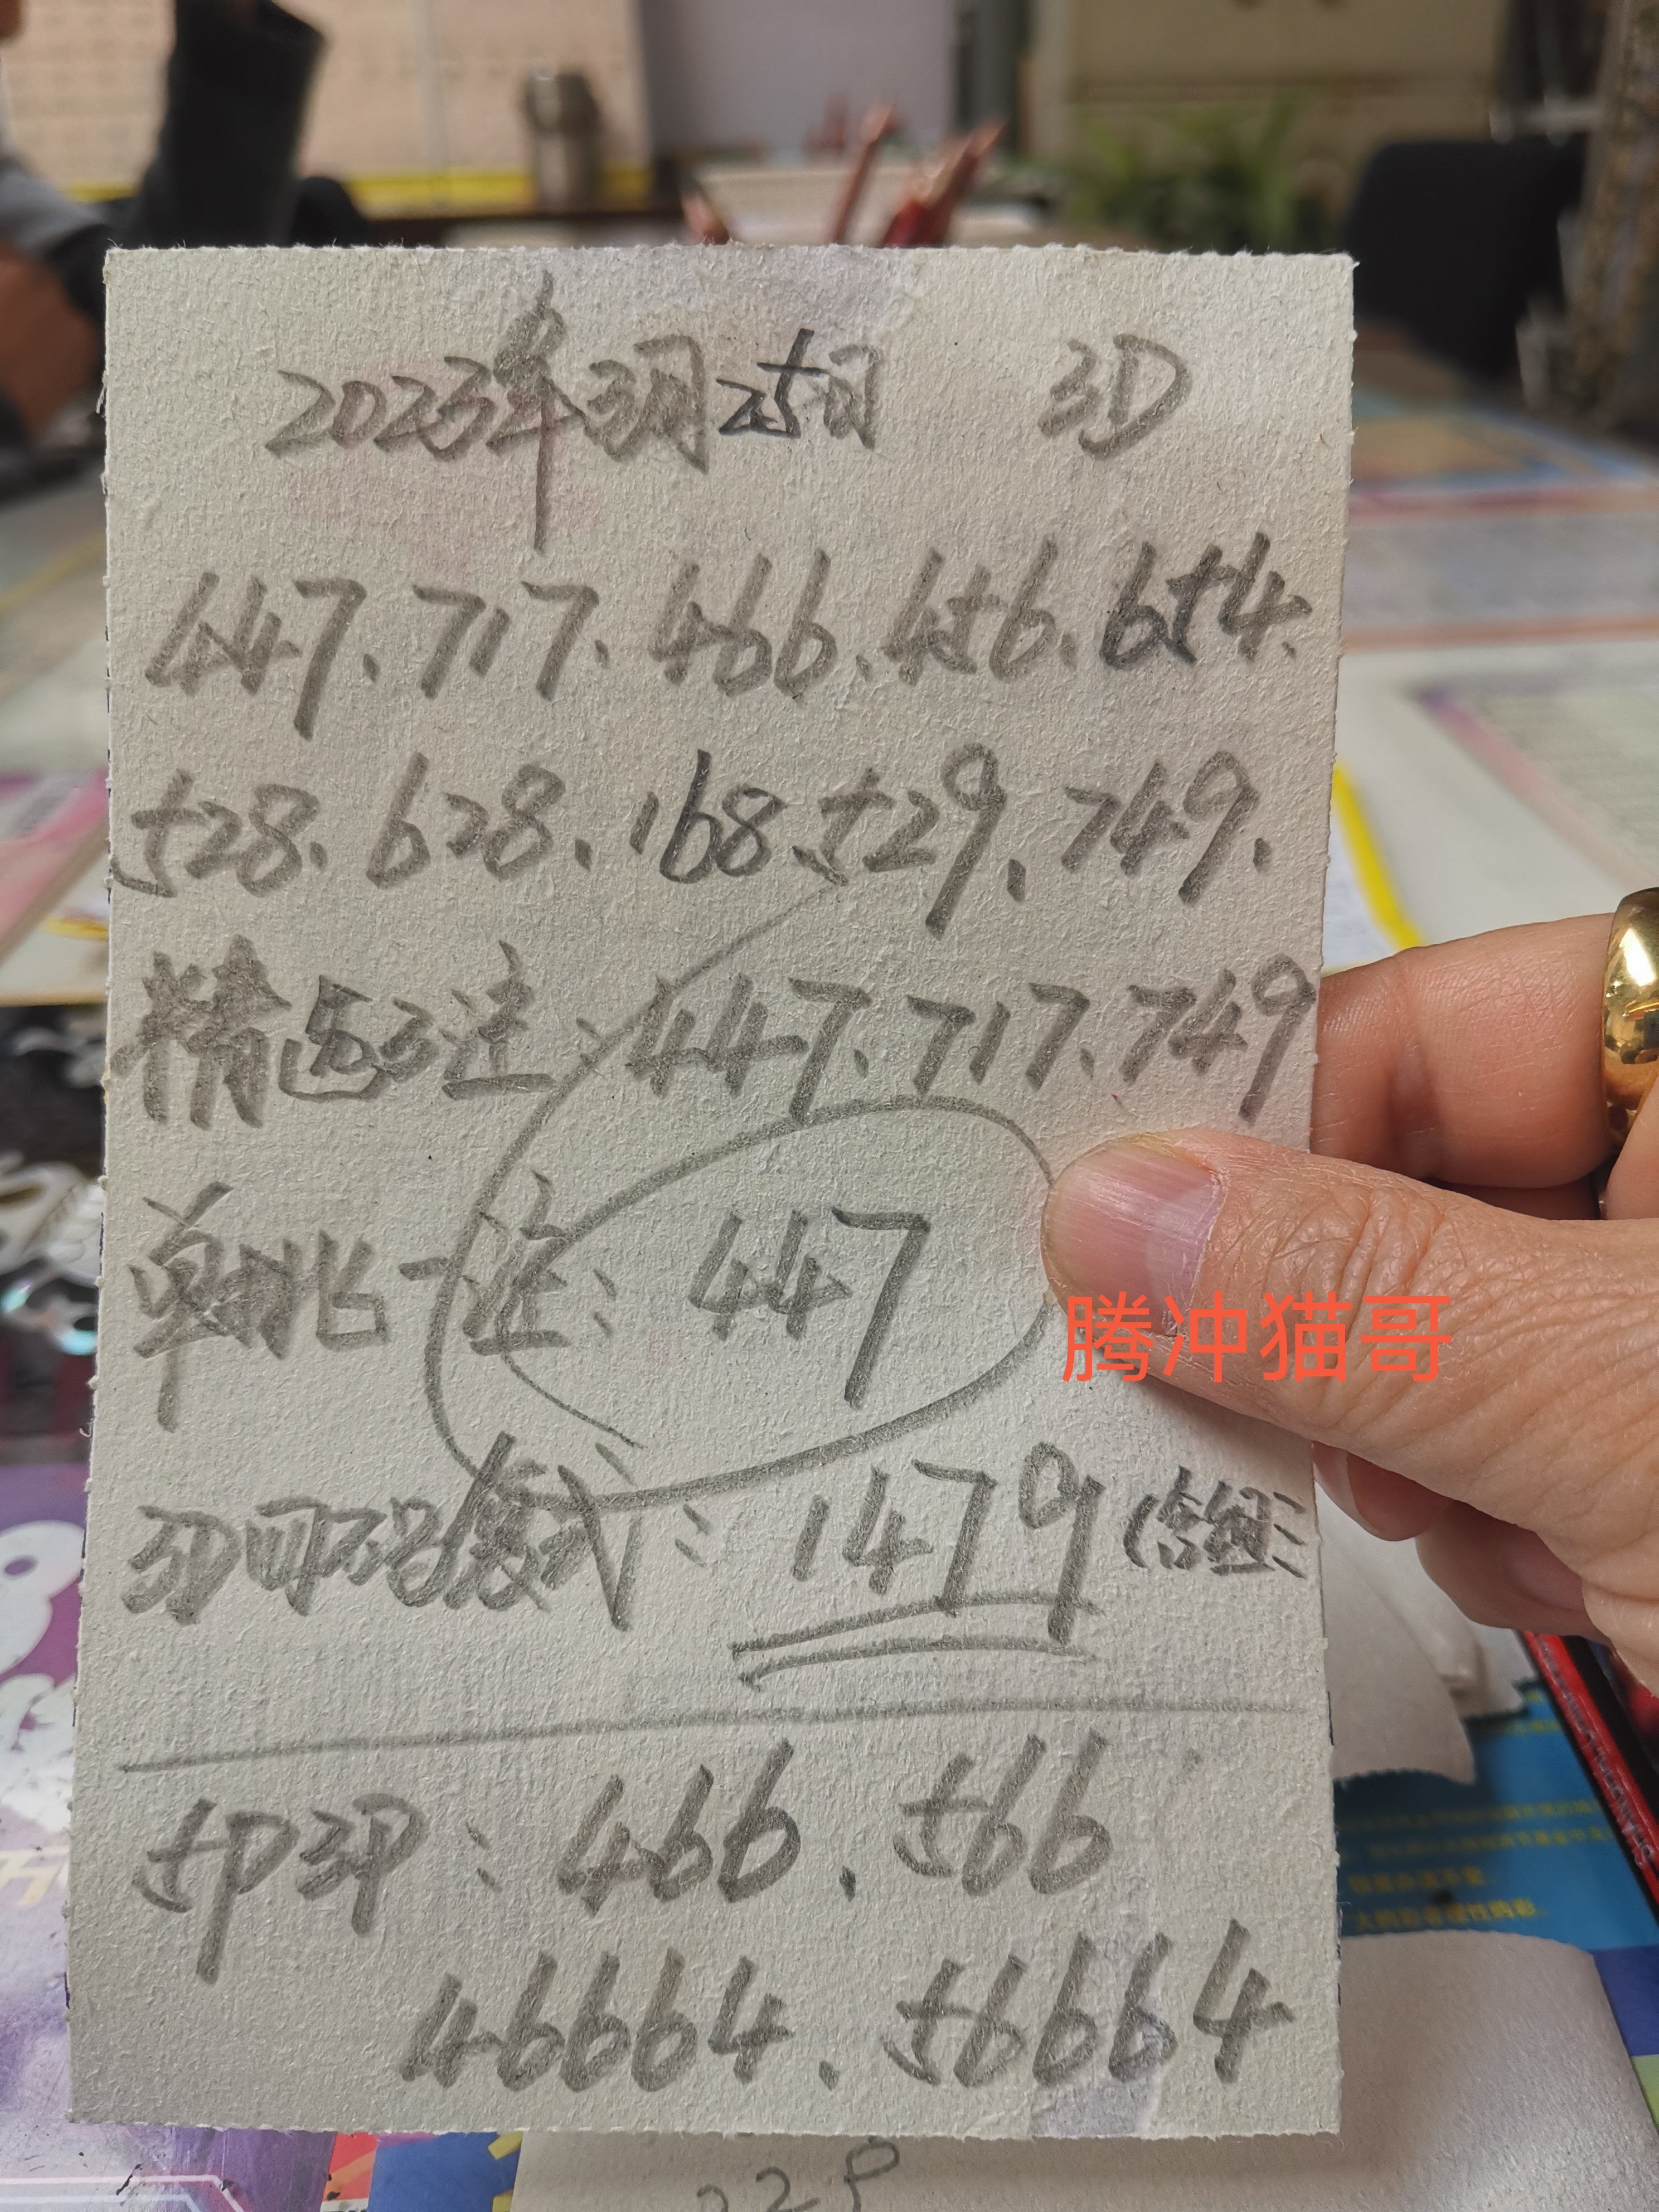 2023年3月25日 3D
447.717.466.456.654.
528.628.168.529.749.
精选3注:447.717.749
单挑一注:447
腾冲猫哥
3D四码复式:1479(含组三
5P3P:466.566
46664.56664